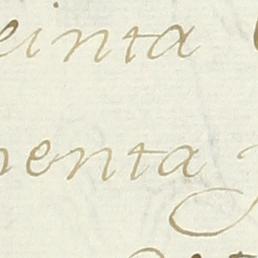 einta
nenta y